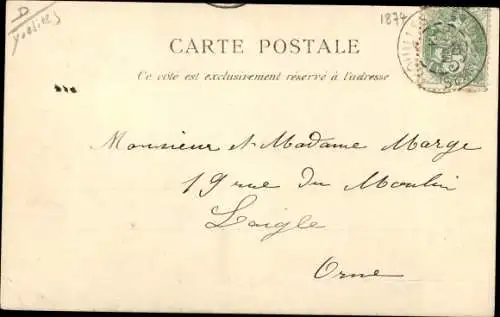 D
Yvelines
1874
CARTE POSTALE
Ce côté est exclusivement réservé à l'adresse
Monsieur et Madame Marge
19 rue du Moulin
Laigle
Orne